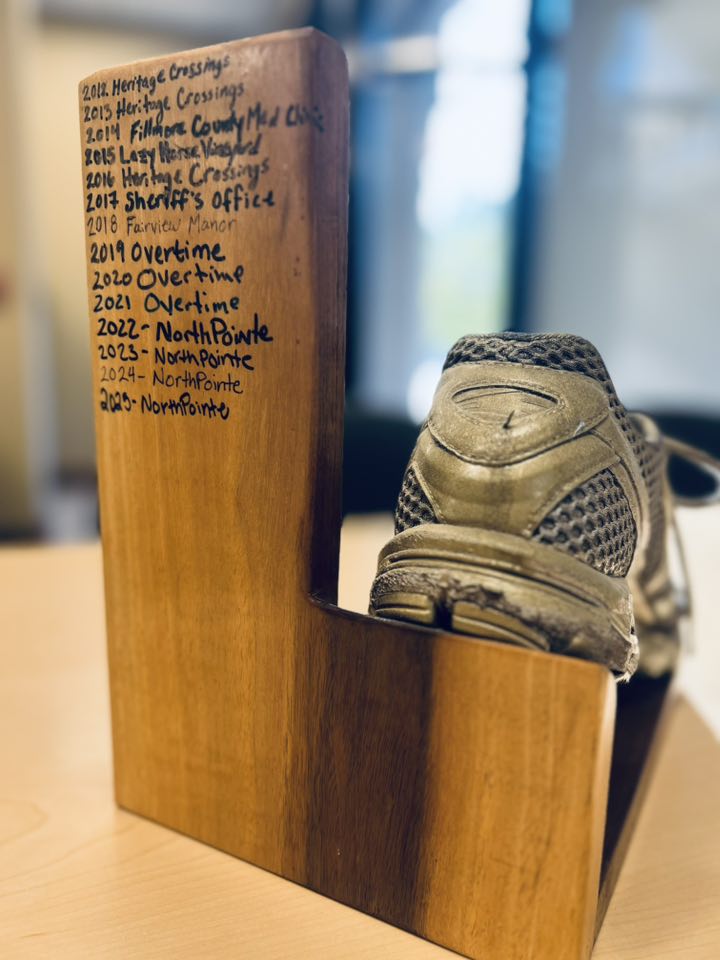 2012 Heritage Crossings
2013 Heritage Crossings
2014 Fillmore County Med Clinic
2015 Lazy Horse Vineyard
2016 Heritage Crossings
2017 Sheriff's Office
2018 Fairview Manor
2019 Overtime
2020 Overtime
2021 Overtime
2022- NorthPointe
2023- NorthPointe
2024- NorthPointe
2025- NorthPointe